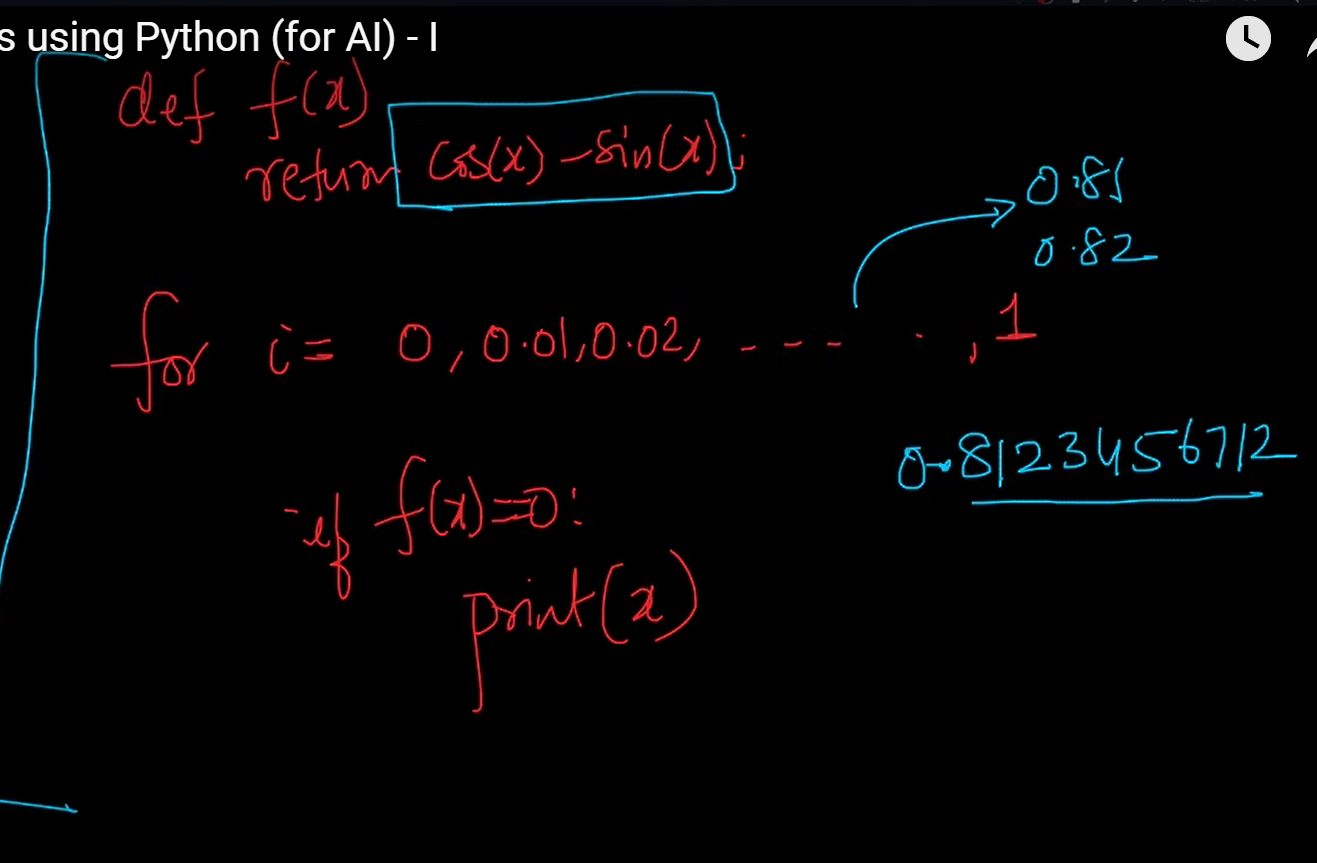 s using Python (for AI) - I
def f(x)
return cos(x) - sin(x);
0.81
0.82
for i = 0, 0.01, 0.02, - - - - . , 1
0.8123456712
if f(x)=0:
print(x)